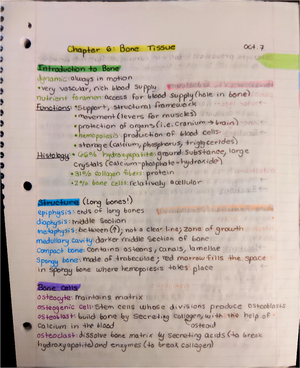 Chapter 6: Bone Tissue
Oct. 7
Introduction to Bone
dynamic: always in motion
•very vascular, rich blood supply
nutrient foramen: access for blood supply (hole in bone)
Functions: •Support, structural framework
•movement (levers for muscles)
•protection of organs (i.e. cranium → brain)
•hemopoiesis: production of blood cells
•storage (calcium, phosphate, triglycerides)
Histology: •66% hydroxyapatite: ground substance, large
crystals (calcium-phosphate + hydroxide)
•31% collagen fibers: protein
•2% bone cells: relatively acellular
Structure (long bones!)
epiphysis: ends of long bones
diaphysis: middle section
metaphysis: between (↑); not a clear line; zone of growth
medullary cavity: darker middle section of bone
compact bone: contains osteons, canals, lamellae
spongy bone: made of trabeculae; red marrow fills the space
in spongy bone where hemopoiesis takes place
Bone cells
osteocyte: maintains matrix
osteogenic cell: stem cells whose divisions produce osteoblasts
osteoblast: build bone by secreting collagen, with the help of
calcium in the blood
osteoid
osteoclast: dissolve bone matrix by secreting acids (to break
hydroxyapatite) and enzymes (to break collagen)